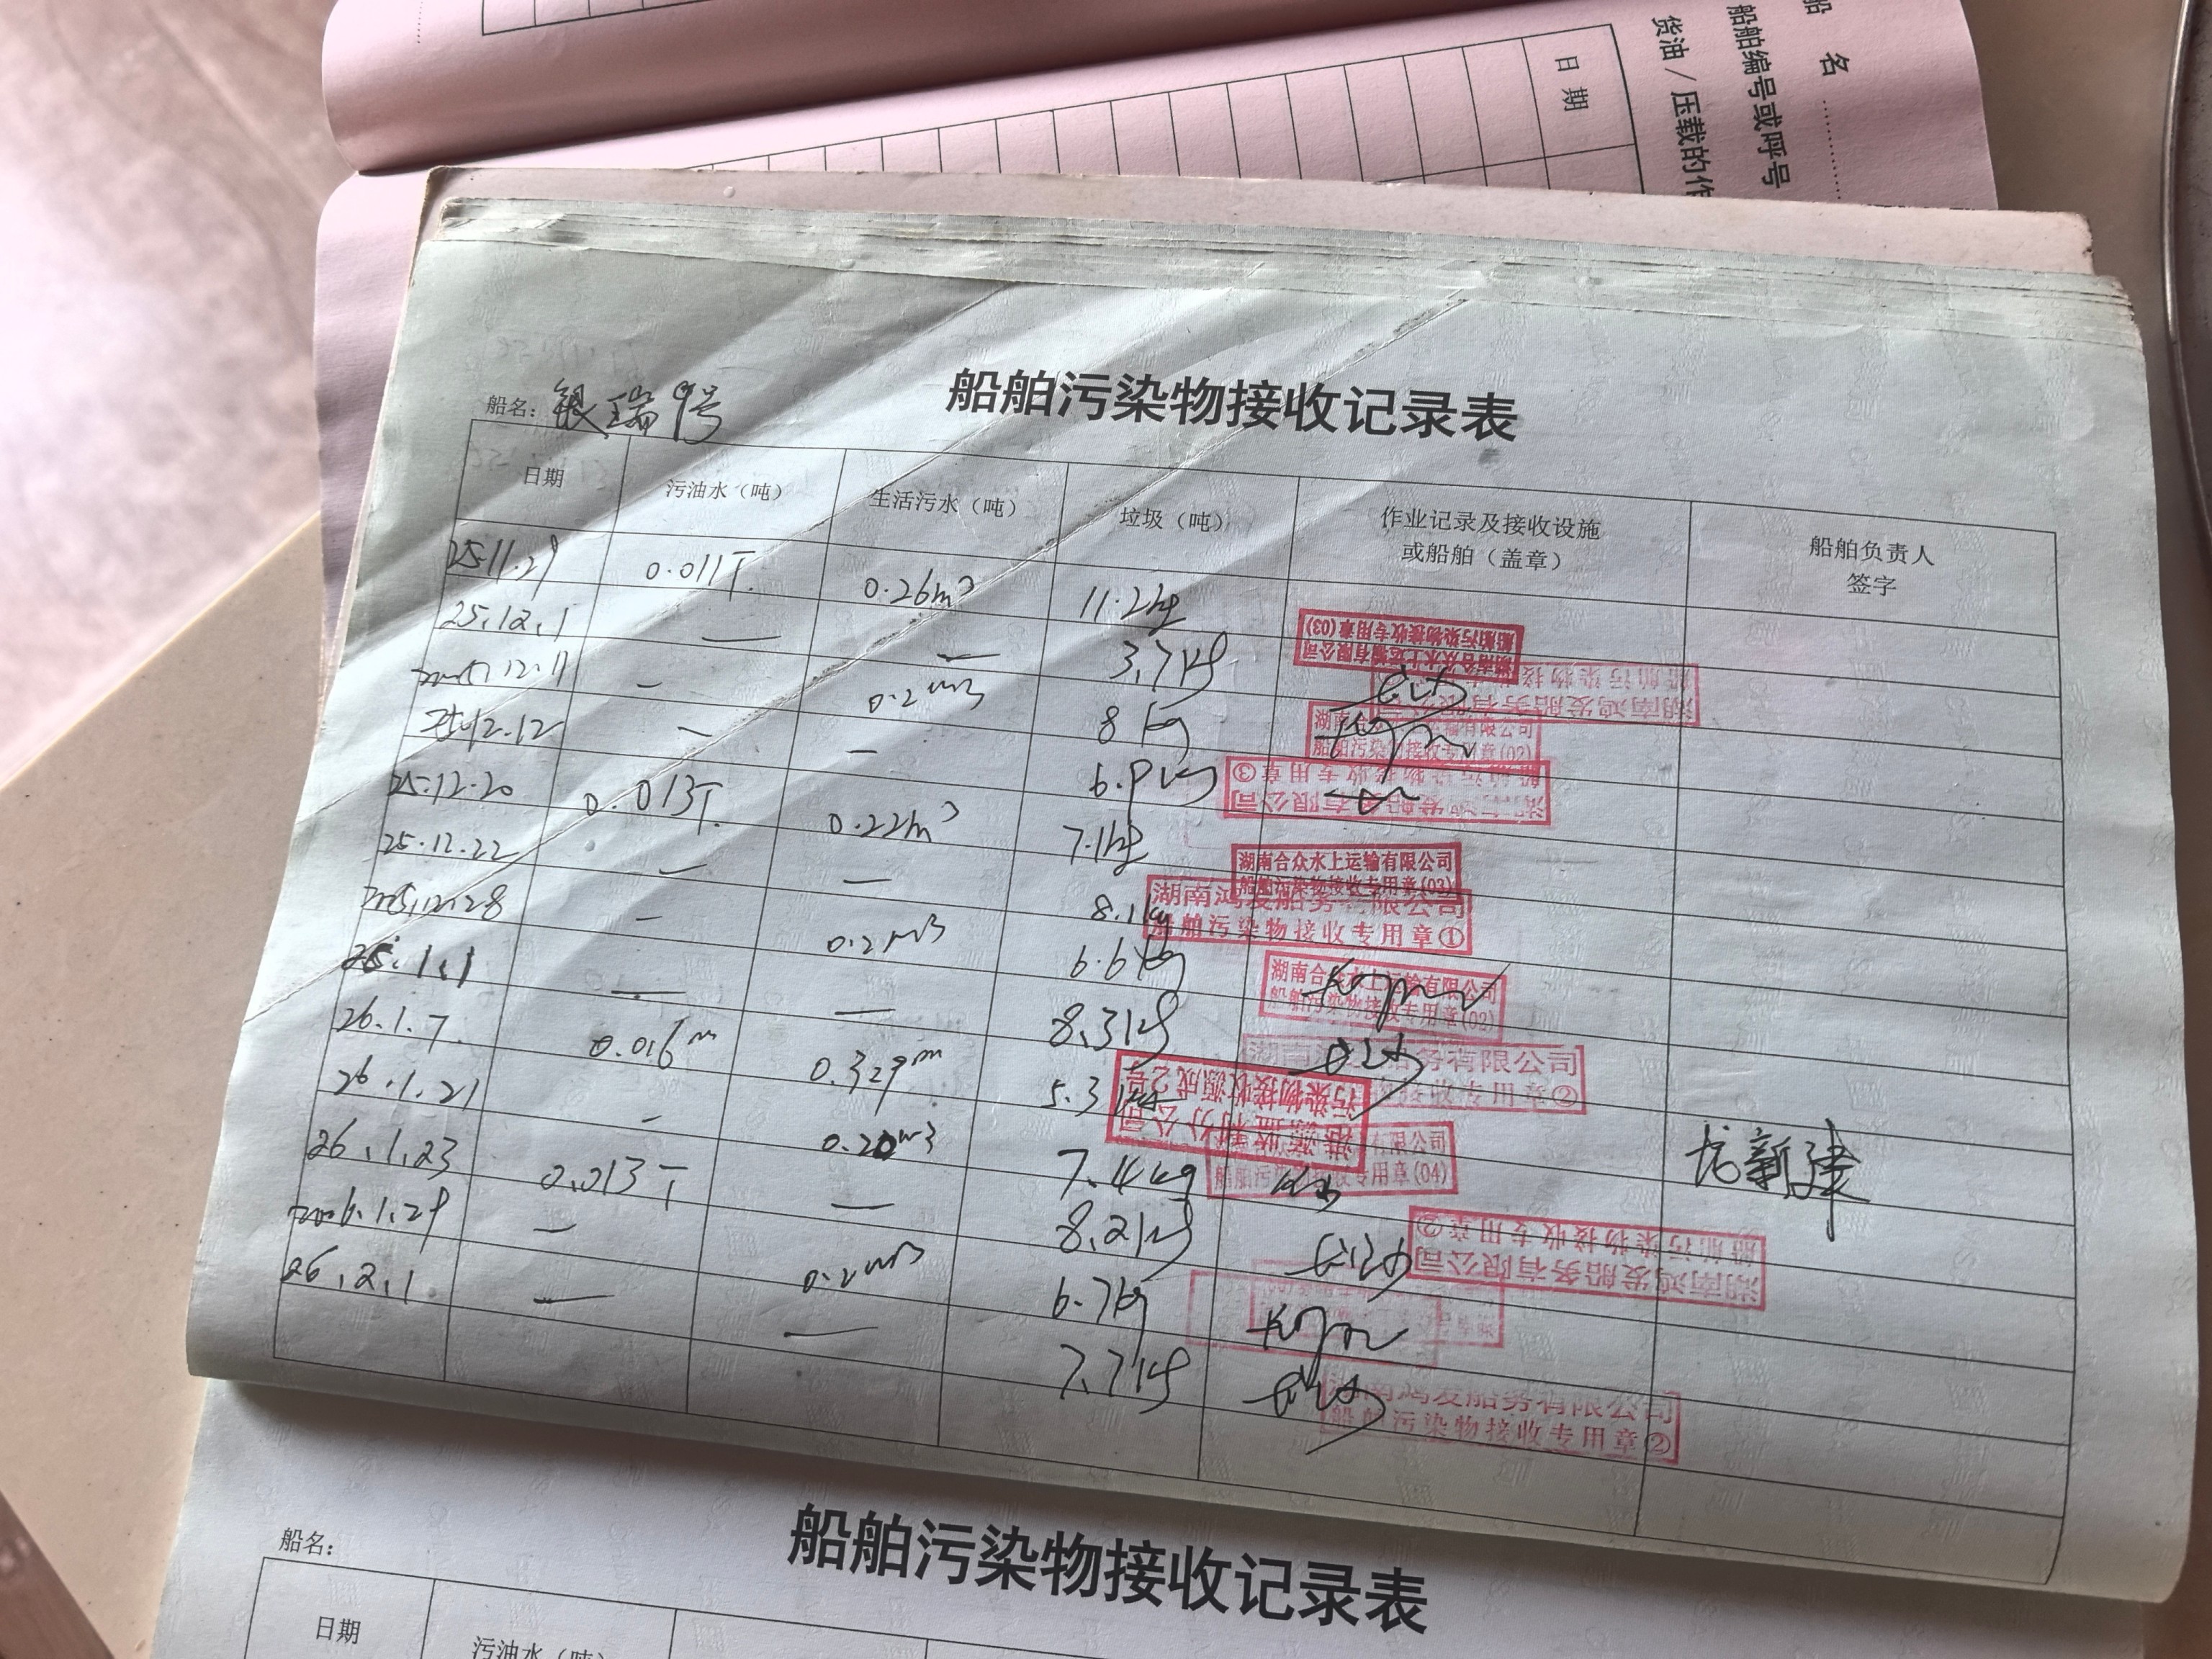 船 名
船舶编号或呼号
货油 / 压载的作
日 期
船舶污染物接收记录表
船名: 银瑞9号
日期 污油水（吨） 生活污水（吨） 垃圾（吨） 作业记录及接收设施或船舶（盖章） 船舶负责人签字
25.11.29 0.011T. 0.26m³ 11.2kg
湖南合众水上运输有限公司
船舶污染物接收专用章(03)
25.12.1 — — 3.7kg
湖南鸿发船务有限公司
船舶污染物接
2025.12.11 — 0.2m3 8kg
湖南合 输有限公司
船舶污染物接收专用章(02)
25.12.12 — — 6.9kg
船舶污染物接收专用章③
发船务有限公司
25.12.20 0.013T. 0.22m³ 7.1kg
湖南合众水上运输有限公司
船舶污染物接收专用章(03)
25.12.22 — — 8.1kg
湖南鸿发船务有限公司
船舶污染物接收专用章①
2025.12.28 — 0.2m3 6.6kg
湖南合众水上运输有限公司
船舶污染物接收专用章(02)
26.1.1 — — 8.3kg
湖南 船务有限公司
接收专用章②
26.1.7. 0.016m 0.329m 5.3kg
港源监利分公司
污染物接收源成2号
26.1.21 — 0.20m3 7.4kg
有限公司
船舶污 收专用章(04)
龙新建
26.1.23 0.013T — 8.2kg
湖南鸿发船务有限公司
船舶污染物接收专用章②
2026.1.29 — 0.2m3 6.7kg
26.2.1 — — 7.7kg
湖南鸿发船务有限公司
船舶污染物接收专用章②
船舶污染物接收记录表
船名:
日期 污油水（吨）